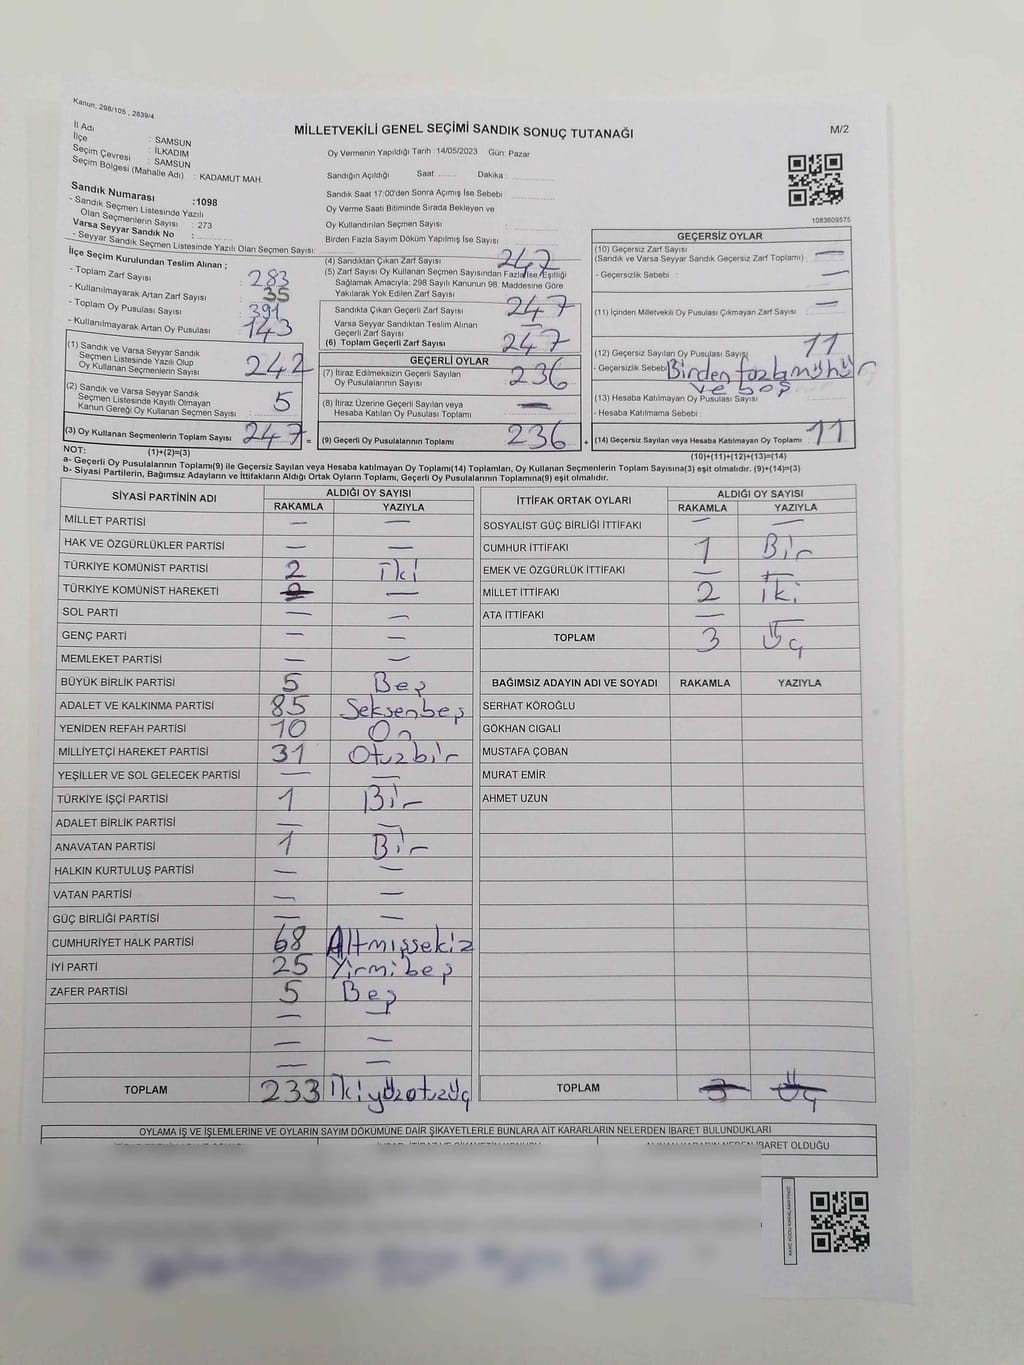 Kanun, 298/105 , 2839/4
MİLLETVEKİLİ GENEL SEÇİMİ SANDIK SONUÇ TUTANAĞI
M/2
İl Adı : SAMSUN
İlçe : İLKADIM
Seçim Çevresi : SAMSUN
Seçim Bölgesi (Mahalle Adı) : KADAMUT MAH.
Oy Vermenin Yapıldığı Tarih :14/05/2023 Gün: Pazar
Sandığın Açıldığı Saat ........ Dakika :
Sandık Saat 17:00'den Sonra Açımış İse Sebebi :
Oy Verme Saati Bitiminde Sırada Bekleyen ve
Oy Kullandırılan Seçmen Sayısı :
Birden Fazla Sayım Döküm Yapılmış İse Sayısı :
1083609575
Sandık Numarası :1098
- Sandık Seçmen Listesinde Yazılı
Olan Seçmenlerin Sayısı : 273
Varsa Seyyar Sandık No :
- Seyyar Sandık Seçmen Listesinde Yazılı Olan Seçmen Sayısı:
İlçe Seçim Kurulundan Teslim Alınan ;
- Toplam Zarf Sayısı : 283
- Kullanılmayarak Artan Zarf Sayısı : 35
- Toplam Oy Pusulası Sayısı : 391
- Kullanılmayarak Artan Oy Pusulası : 143
(1) Sandık ve Varsa Seyyar Sandık
Seçmen Listesinde Yazılı Olup
Oy Kullanan Seçmenlerin Sayısı : 242
(2) Sandık ve Varsa Seyyar Sandık
Seçmen Listesinde Kayıtlı Olmayan
Kanun Gereği Oy Kullanan Seçmen Sayısı : 5
(3) Oy Kullanan Seçmenlerin Toplam Sayısı 247 =
(1)+(2)=(3)
(4) Sandıktan Çıkan Zarf Sayısı 247
(5) Zarf Sayısı Oy Kullanan Seçmen Sayısından Fazla İse Eşitliği
Sağlamak Amacıyla; 298 Sayılı Kanunun 98. Maddesine Göre
Yakılarak Yok Edilen Zarf Sayısı
Sandıkta Çıkan Geçerli Zarf Sayısı 247
Varsa Seyyar Sandıktan Teslim Alınan
Geçerli Zarf Sayısı —
(6) Toplam Geçerli Zarf Sayısı 247
GEÇERLİ OYLAR
(7) İtiraz Edilmeksizin Geçerli Sayılan
Oy Pusulalarının Sayısı 236
(8) İtiraz Üzerine Geçerli Sayılan veya
Hesaba Katılan Oy Pusulası Toplamı —
(9) Geçerli Oy Pusulalarının Toplamı 236 +
GEÇERSİZ OYLAR
(10) Geçersiz Zarf Sayısı
(Sandık ve Varsa Seyyar Sandık Geçersiz Zarf Toplamı) —
- Geçersizlik Sebebi : —
(11) İçinden Milletvekili Oy Pusulası Çıkmayan Zarf Sayısı —
(12) Geçersiz Sayılan Oy Pusulası Sayısı 11
- Geçersizlik Sebebi Birden fazla mühür
ve boş
(13) Hesaba Katılmayan Oy Pusulası Sayısı
- Hesaba Katılmama Sebebi :
(14) Geçersiz Sayılan veya Hesaba Katılmayan Oy Toplamı 11
(10)+(11)+(12)+(13)=(14)
NOT:
a- Geçerli Oy Pusulalarının Toplamı(9) ile Geçersiz Sayılan veya Hesaba katılmayan Oy Toplamı(14) Toplamları, Oy Kullanan Seçmenlerin Toplam Sayısına(3) eşit olmalıdır. (9)+(14)=(3)
b- Siyasi Partilerin, Bağımsız Adayların ve İttifakların Aldığı Ortak Oyların Toplamı, Geçerli Oy Pusulalarının Toplamına(9) eşit olmalıdır.
SİYASİ PARTİNİN ADI ALDIĞI OY SAYISI
RAKAMLA YAZIYLA
MİLLET PARTİSİ — —
HAK VE ÖZGÜRLÜKLER PARTİSİ — —
TÜRKİYE KOMÜNİST PARTİSİ 2 iki
TÜRKİYE KOMÜNİST HAREKETİ —
SOL PARTİ — —
GENÇ PARTİ — —
MEMLEKET PARTİSİ — —
BÜYÜK BİRLİK PARTİSİ 5 Beş
ADALET VE KALKINMA PARTİSİ 85 Seksenbeş
YENİDEN REFAH PARTİSİ 10 On
MİLLİYETÇİ HAREKET PARTİSİ 31 Otuzbir
YEŞİLLER VE SOL GELECEK PARTİSİ — —
TÜRKİYE İŞÇİ PARTİSİ 1 Bir
ADALET BİRLİK PARTİSİ — —
ANAVATAN PARTİSİ 1 Bir
HALKIN KURTULUŞ PARTİSİ — —
VATAN PARTİSİ — —
GÜÇ BİRLİĞİ PARTİSİ — —
CUMHURİYET HALK PARTİSİ 68 Altmışsekiz
İYİ PARTİ 25 Yirmibeş
ZAFER PARTİSİ 5 Beş
— —
— —
— —
TOPLAM 233 İkiyüzotuzüç
İTTİFAK ORTAK OYLARI ALDIĞI OY SAYISI
RAKAMLA YAZIYLA
SOSYALİST GÜÇ BİRLİĞİ İTTİFAKI — —
CUMHUR İTTİFAKI 1 Bir
EMEK VE ÖZGÜRLÜK İTTİFAKI — —
MİLLET İTTİFAKI 2 iki
ATA İTTİFAKI — —
TOPLAM 3 Üç
BAĞIMSIZ ADAYIN ADI VE SOYADI RAKAMLA YAZIYLA
SERHAT KÖROĞLU
GÖKHAN CIGALI
MUSTAFA ÇOBAN
MURAT EMİR
AHMET UZUN
TOPLAM 3 Üç
OYLAMA İŞ VE İŞLEMLERİNE VE OYLARIN SAYIM DÖKÜMÜNE DAİR ŞİKAYETLERLE BUNLARA AİT KARARLARIN NELERDEN İBARET BULUNDUKLARI
İBARET OLDUĞU
KARE KODU KARALAMAYINIZ!